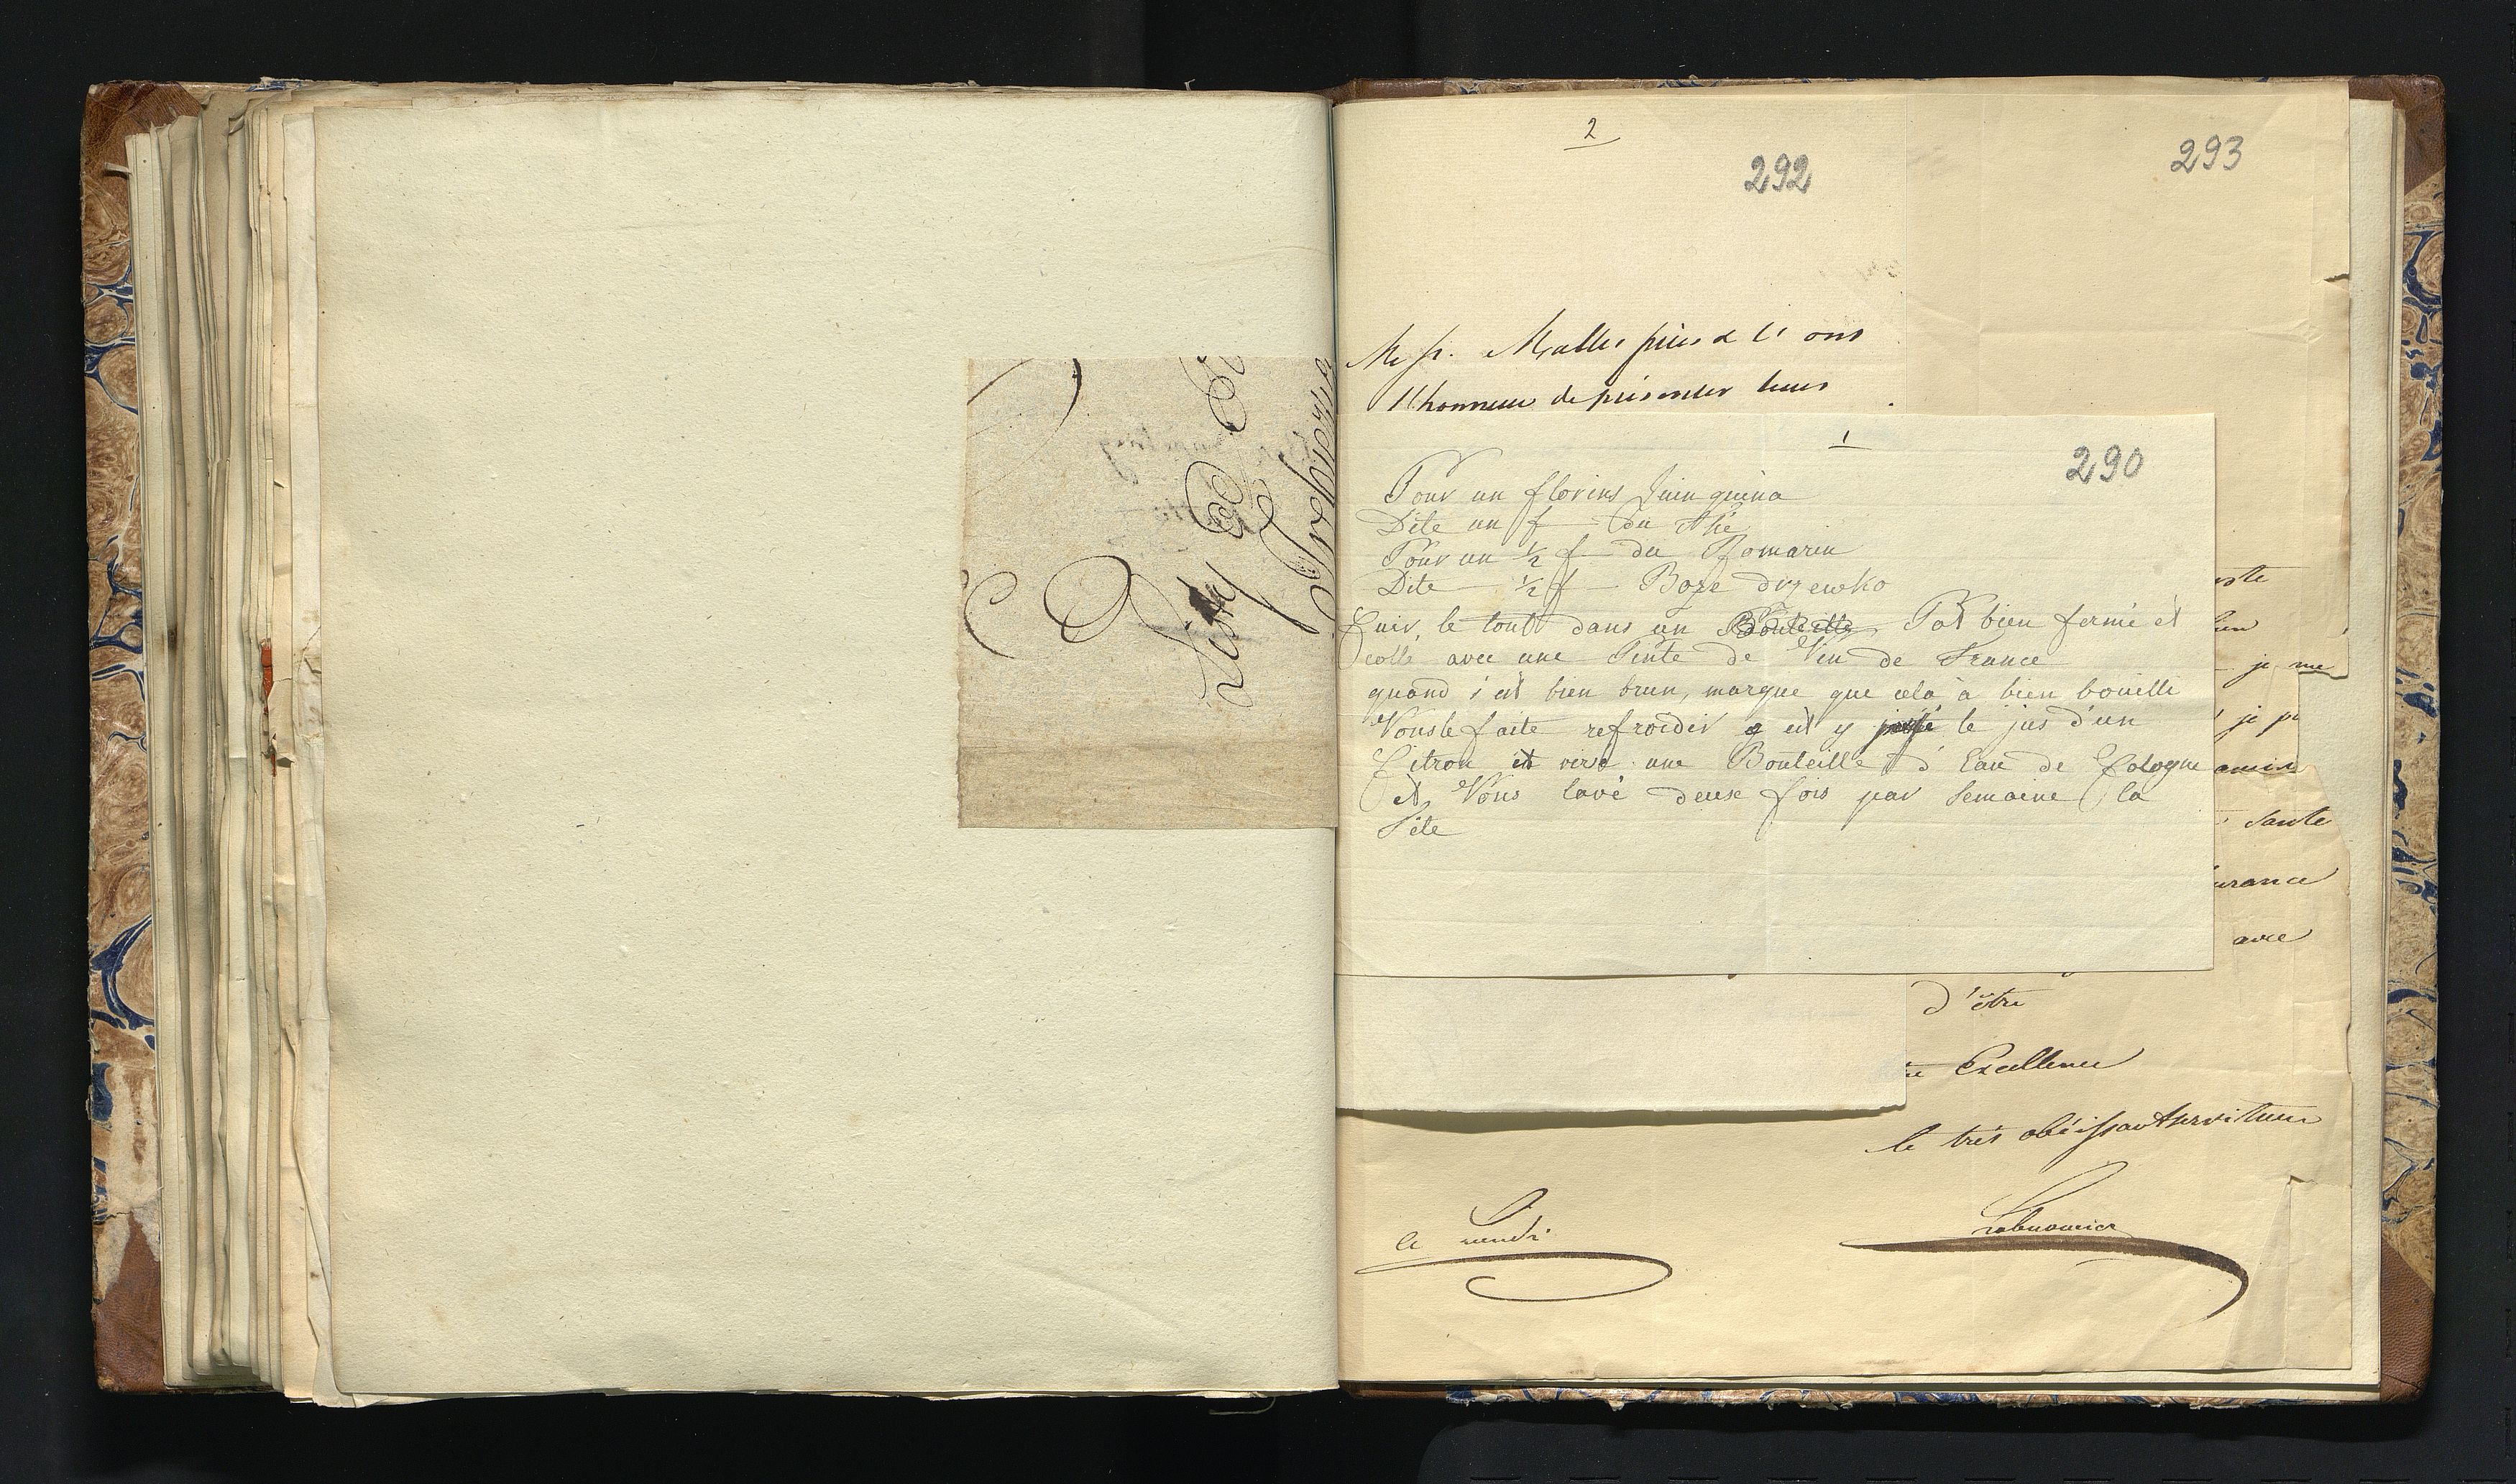 Listy Od
2
292
293
Messrs. Mallet frères & Cie ont
l'honneur de présenter leurs
1
290
Pour un florins Quinquina
Dite un f — du Thé
Pour un ½ f — du Romarin
Dite — ½ f — Boże drzewko
Cuir, le tout dans un Bouteille Pot bien fermé et
colle avec une Pinte de Vin de France
quand s'est bien brun, marque que cela a bien bouilli
Vous le faite refroidir et y le jus d'un
Citron et verse une Bouteille d'Eau de Cologne
et Vous lavé deuse fois par Semaine la
Tête
je me
je
amis
santé
avec
d'être
Excellence
le très obéissant serviteur
ce lundi